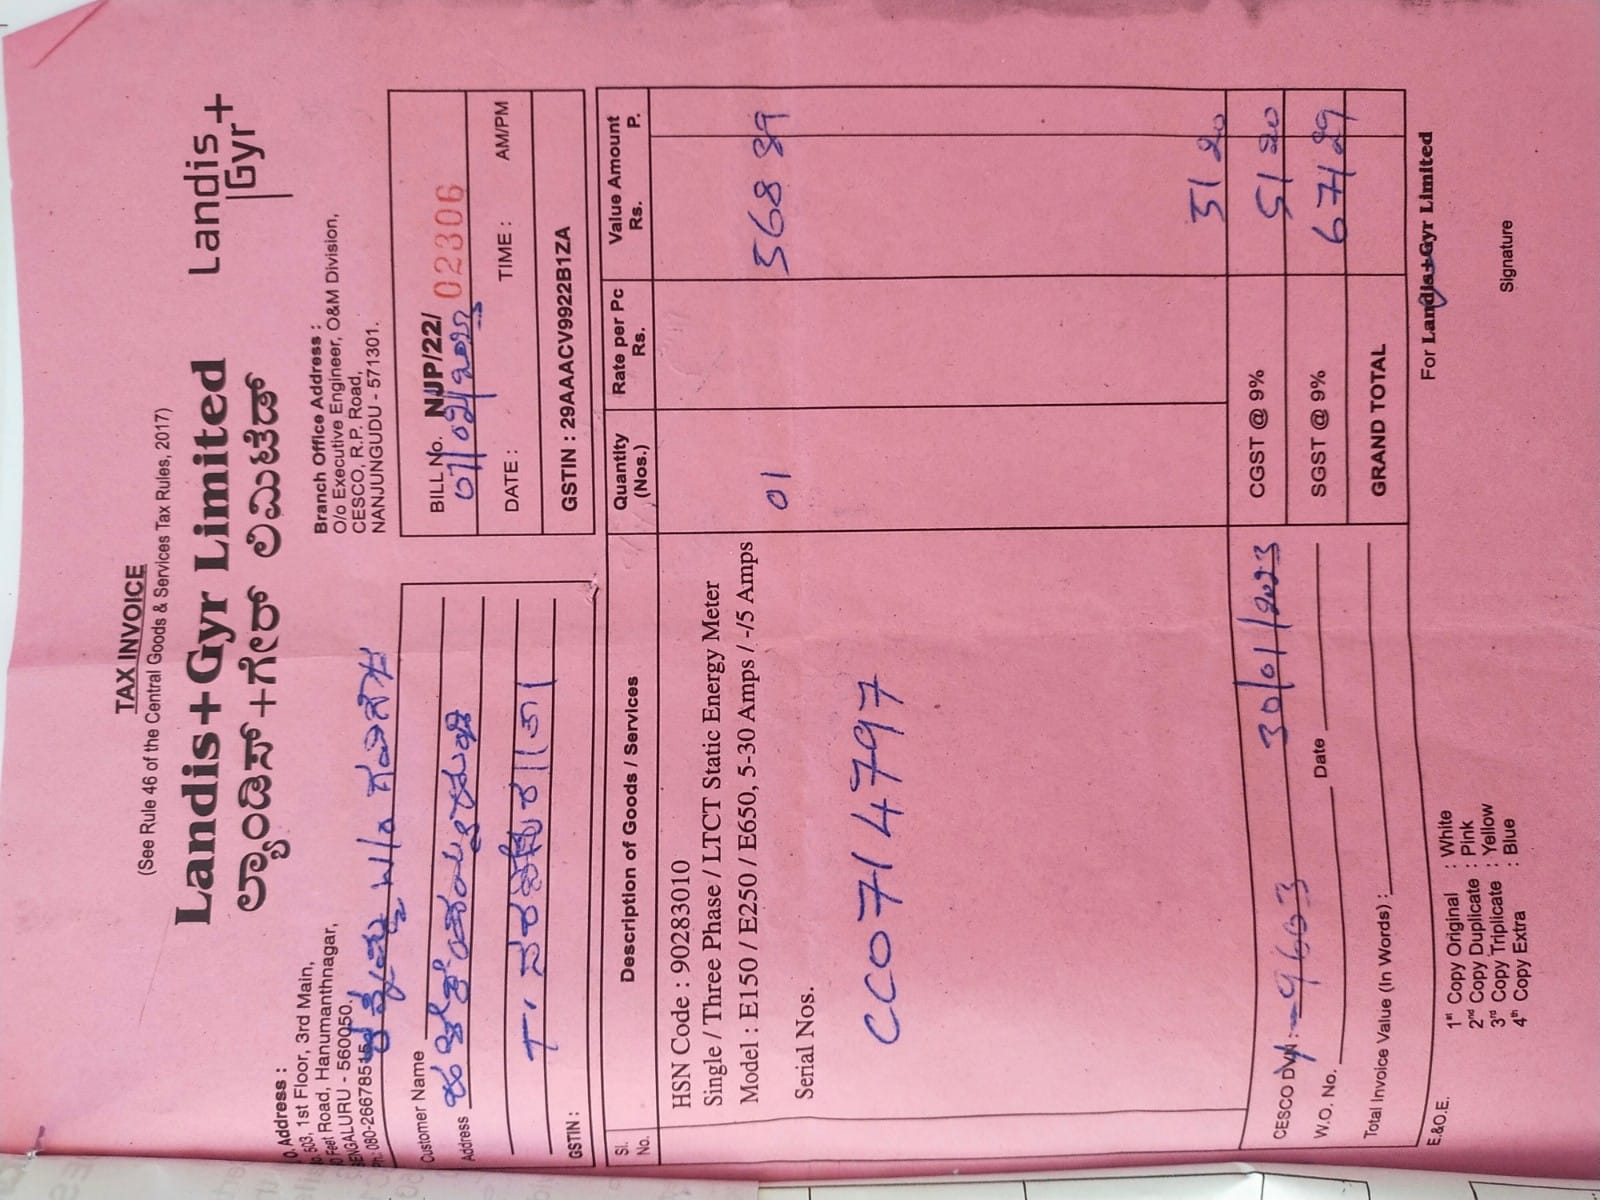 TAX INVOICE
(See Rule 46 of the Central Goods & Services Tax Rules, 2017)
Landis+Gyr Limited
ಲ್ಯಾಂಡಿಸ್+ಗೇರ್ ಲಿಮಿಟೆಡ್
Landis
Gyr+
Address :
503, 1st Floor, 3rd Main,
Feet Road, Hanumanthnagar,
BENGALURU - 560050.
Ph: 080-26678515
Branch Office Address :
O/o Executive Engineer, O&M Division,
CESCO, R.P. Road,
NANJUNGUDU - 571301.
Customer Name
Address
T.
GSTIN :
BILL No. NJP/22/ 02306
DATE : TIME : AM/PM
GSTIN : 29AAACV9922B1ZA
Sl. No. Description of Goods / Services Quantity (Nos.) Rate per Pc Rs. Value Amount Rs. P.
HSN Code : 90283010
Single / Three Phase / LTCT Static Energy Meter
Model : E150 / E250 / E650, 5-30 Amps / -/5 Amps
01 568 89
Serial Nos.
CC0714797
51 20
CESCO DVN : 9603 30/01/2023 CGST @ 9% 51 20
W.O. No. Date SGST @ 9% 671 29
Total Invoice Value (In Words) : GRAND TOTAL
E.&O.E.
For Landis+Gyr Limited
1st Copy Original : White
2nd Copy Duplicate : Pink
3rd Copy Triplicate : Yellow
4th Copy Extra : Blue
Signature